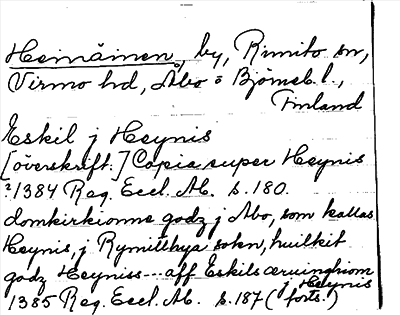 Heinäinen, by, Rimito sn,
Virmo hd, Åbo o Björneb. l.,
Finland
Eskil j Heynis
[överskrift:] Copia super Heynis
1384 Reg. Eccl. Ab. s. 180.
domkirkionne godz j Abo, som kallas
Heynis, j Rymitthya sokn, huilkit
godz Heyniss --- aff Eskils æruinghiom
j Heynis
1385 Reg. Eccl. Ab. s. 187 (forts.)